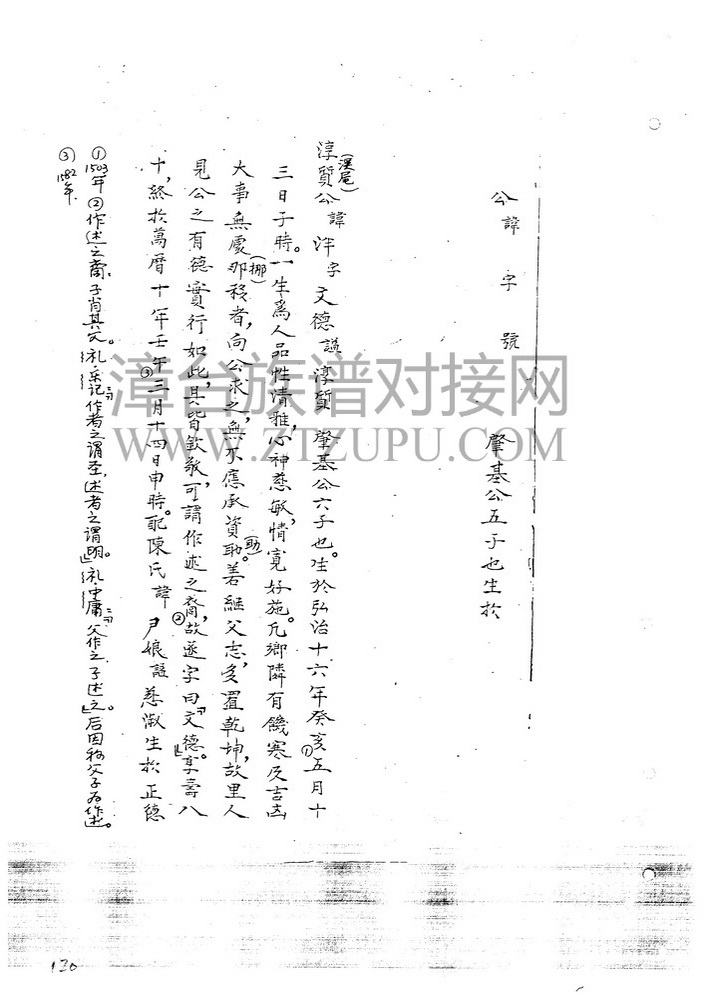 公諱 字 號 肇基公五子也生於
(溪尾)
淳質公諱 泮字 文德諡 淳質 肇基公六子也。生於弘治十六年癸亥①五月十
三日子時。一生為人品性清雅,心神慈敏,情寬好施。凡鄉隣有饑寒及吉凶
大事無處那(挪)移者,向公求之,無不應承資助(助)。善継父志,多置乾坤,故里人
見公之有德實行如此,其皆欽敬,可謂作述之裔②,故遂字曰「文德」。享壽八
十,終於萬曆十年壬午③三月十四日申時。配陳氏諱 尹娘諡 慈淑生於正德
①1503年②作述之裔:子肖其父。《礼·乐记》:“作者之谓圣,述者之谓明。”《礼·中庸》:“父作之,子述之。”后因称父子为作述。
③1582年.
漳台族谱对接网
WWW.ZTZUPU.COM
130